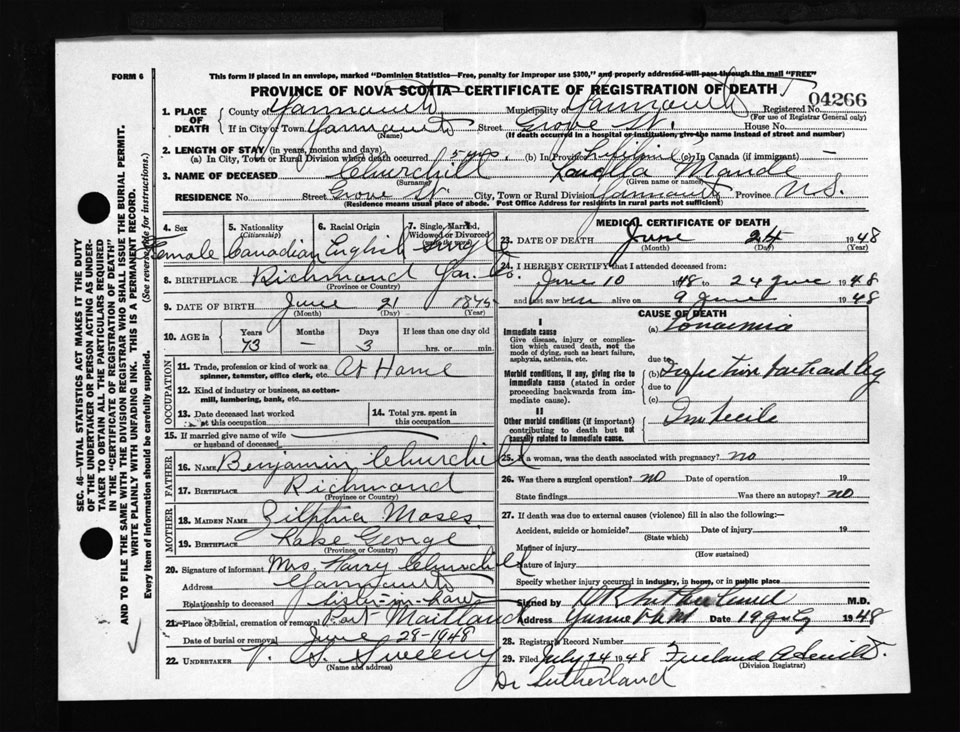 FORM 6
This form if placed in an envelope, marked "Dominion Statistics—Free, penalty for improper use $300," and properly addressed will pass through the mail "FREE"
PROVINCE OF NOVA SCOTIA—CERTIFICATE OF REGISTRATION OF DEATH
04266
1. PLACE OF DEATH County of Yarmouth Municipality of Yarmouth Registered No.
(For use of Registrar General only)
If in City or Town Yarmouth Street Grove St. House No.
(Name) (If death occurred in a hospital or institution, give the name instead of street and number)
2. LENGTH OF STAY (in years, months and days)
(a) In City, Town or Rural Division where death occurred 5 yrs. (b) In Province Lifetime (c) In Canada (if immigrant) —
3. NAME OF DECEASED Churchill Maude
(Surname) (Given name or names)
RESIDENCE No. Street Grove St. City, Town or Rural Division Yarmouth Province N.S.
(Residence means usual place of abode. Post Office Address for residents in rural parts not sufficient)
4. Sex 5. Nationality (Citizenship) 6. Racial Origin 7. Single, Married, Widowed or Divorced
Female Canadian English Single
8. BIRTHPLACE Richmond Yar. Co.
(Province or Country)
9. DATE OF BIRTH June 21 1875
(Month) (Day) (Year)
10. AGE in Years Months Days If less than one day
73 — 3 hrs. or min.
OCCUPATION
11. Trade, profession or kind of work as spinner, teamster, office clerk, etc. At Home
12. Kind of industry or business, as cotton-mill, lumbering, bank, etc.
13. Date deceased last worked at this occupation 14. Total yrs. spent in this occupation
15. If married give name of wife or husband of deceased
FATHER
16. NAME Benjamin Churchill
17. BIRTHPLACE Richmond
(Province or Country)
MOTHER
18. MAIDEN NAME Moses
19. BIRTHPLACE Lake George
(Province or Country)
20. Signature of informant Mrs. Harry Churchill
Address Yarmouth
Relationship to deceased Sister-in-law
21. Place of burial, cremation or removal Port Maitland
Date of burial or removal June 28-1948
22. UNDERTAKER V. S. Sweeny
(Name and address)
MEDICAL CERTIFICATE OF DEATH
23. DATE OF DEATH June 24 1948
(Month) (Day)
24. I HEREBY CERTIFY that I attended deceased from:
June 10 1948 to 24 June 1948
and last saw alive on 9 June 1948
CAUSE OF DEATH
I
Immediate cause (a) Toxaemia
Give disease, injury or complication which caused death, not the mode of dying, such as heart failure, asphyxia, asthenia, etc.
due to
Morbid conditions, if any, giving rise to immediate cause (stated in order proceeding backwards from immediate).
(b) Infection leg
due to
(c)
II
Other morbid conditions (if important) contributing to death but not causally related to immediate cause. Imbecile
25. If a woman, was the death associated with pregnancy? no
26. Was there a surgical operation? no Date of operation 19
State findings Was there an autopsy? no
27. If death was due to external causes (violence) fill in also the following:—
Accident, suicide or homicide? Date of injury 19
(State which)
Manner of injury
(How sustained)
Nature of injury
Specify whether injury occurred in industry, in home, or in public place
Signed by M.D.
Address Yarmouth Date 19 July 1948
28. Registrar's Record Number
29. Filed July 24 1948 Freeland
(Division Registrar)
Dr Sutherland
SEC. 46—VITAL STATISTICS ACT MAKES IT THE DUTY
OF THE UNDERTAKER OR PERSON ACTING AS UNDER-
TAKER TO OBTAIN ALL THE PARTICULARS REQUIRED
IN THE "CERTIFICATE OF REGISTRATION OF DEATH"
AND TO FILE THE SAME WITH THE DIVISION REGISTRAR WHO SHALL ISSUE THE BURIAL PERMIT.
WRITE PLAINLY WITH UNFADING INK. THIS IS A PERMANENT RECORD.
Every item of information should be carefully supplied. (See reverse side for instructions.)